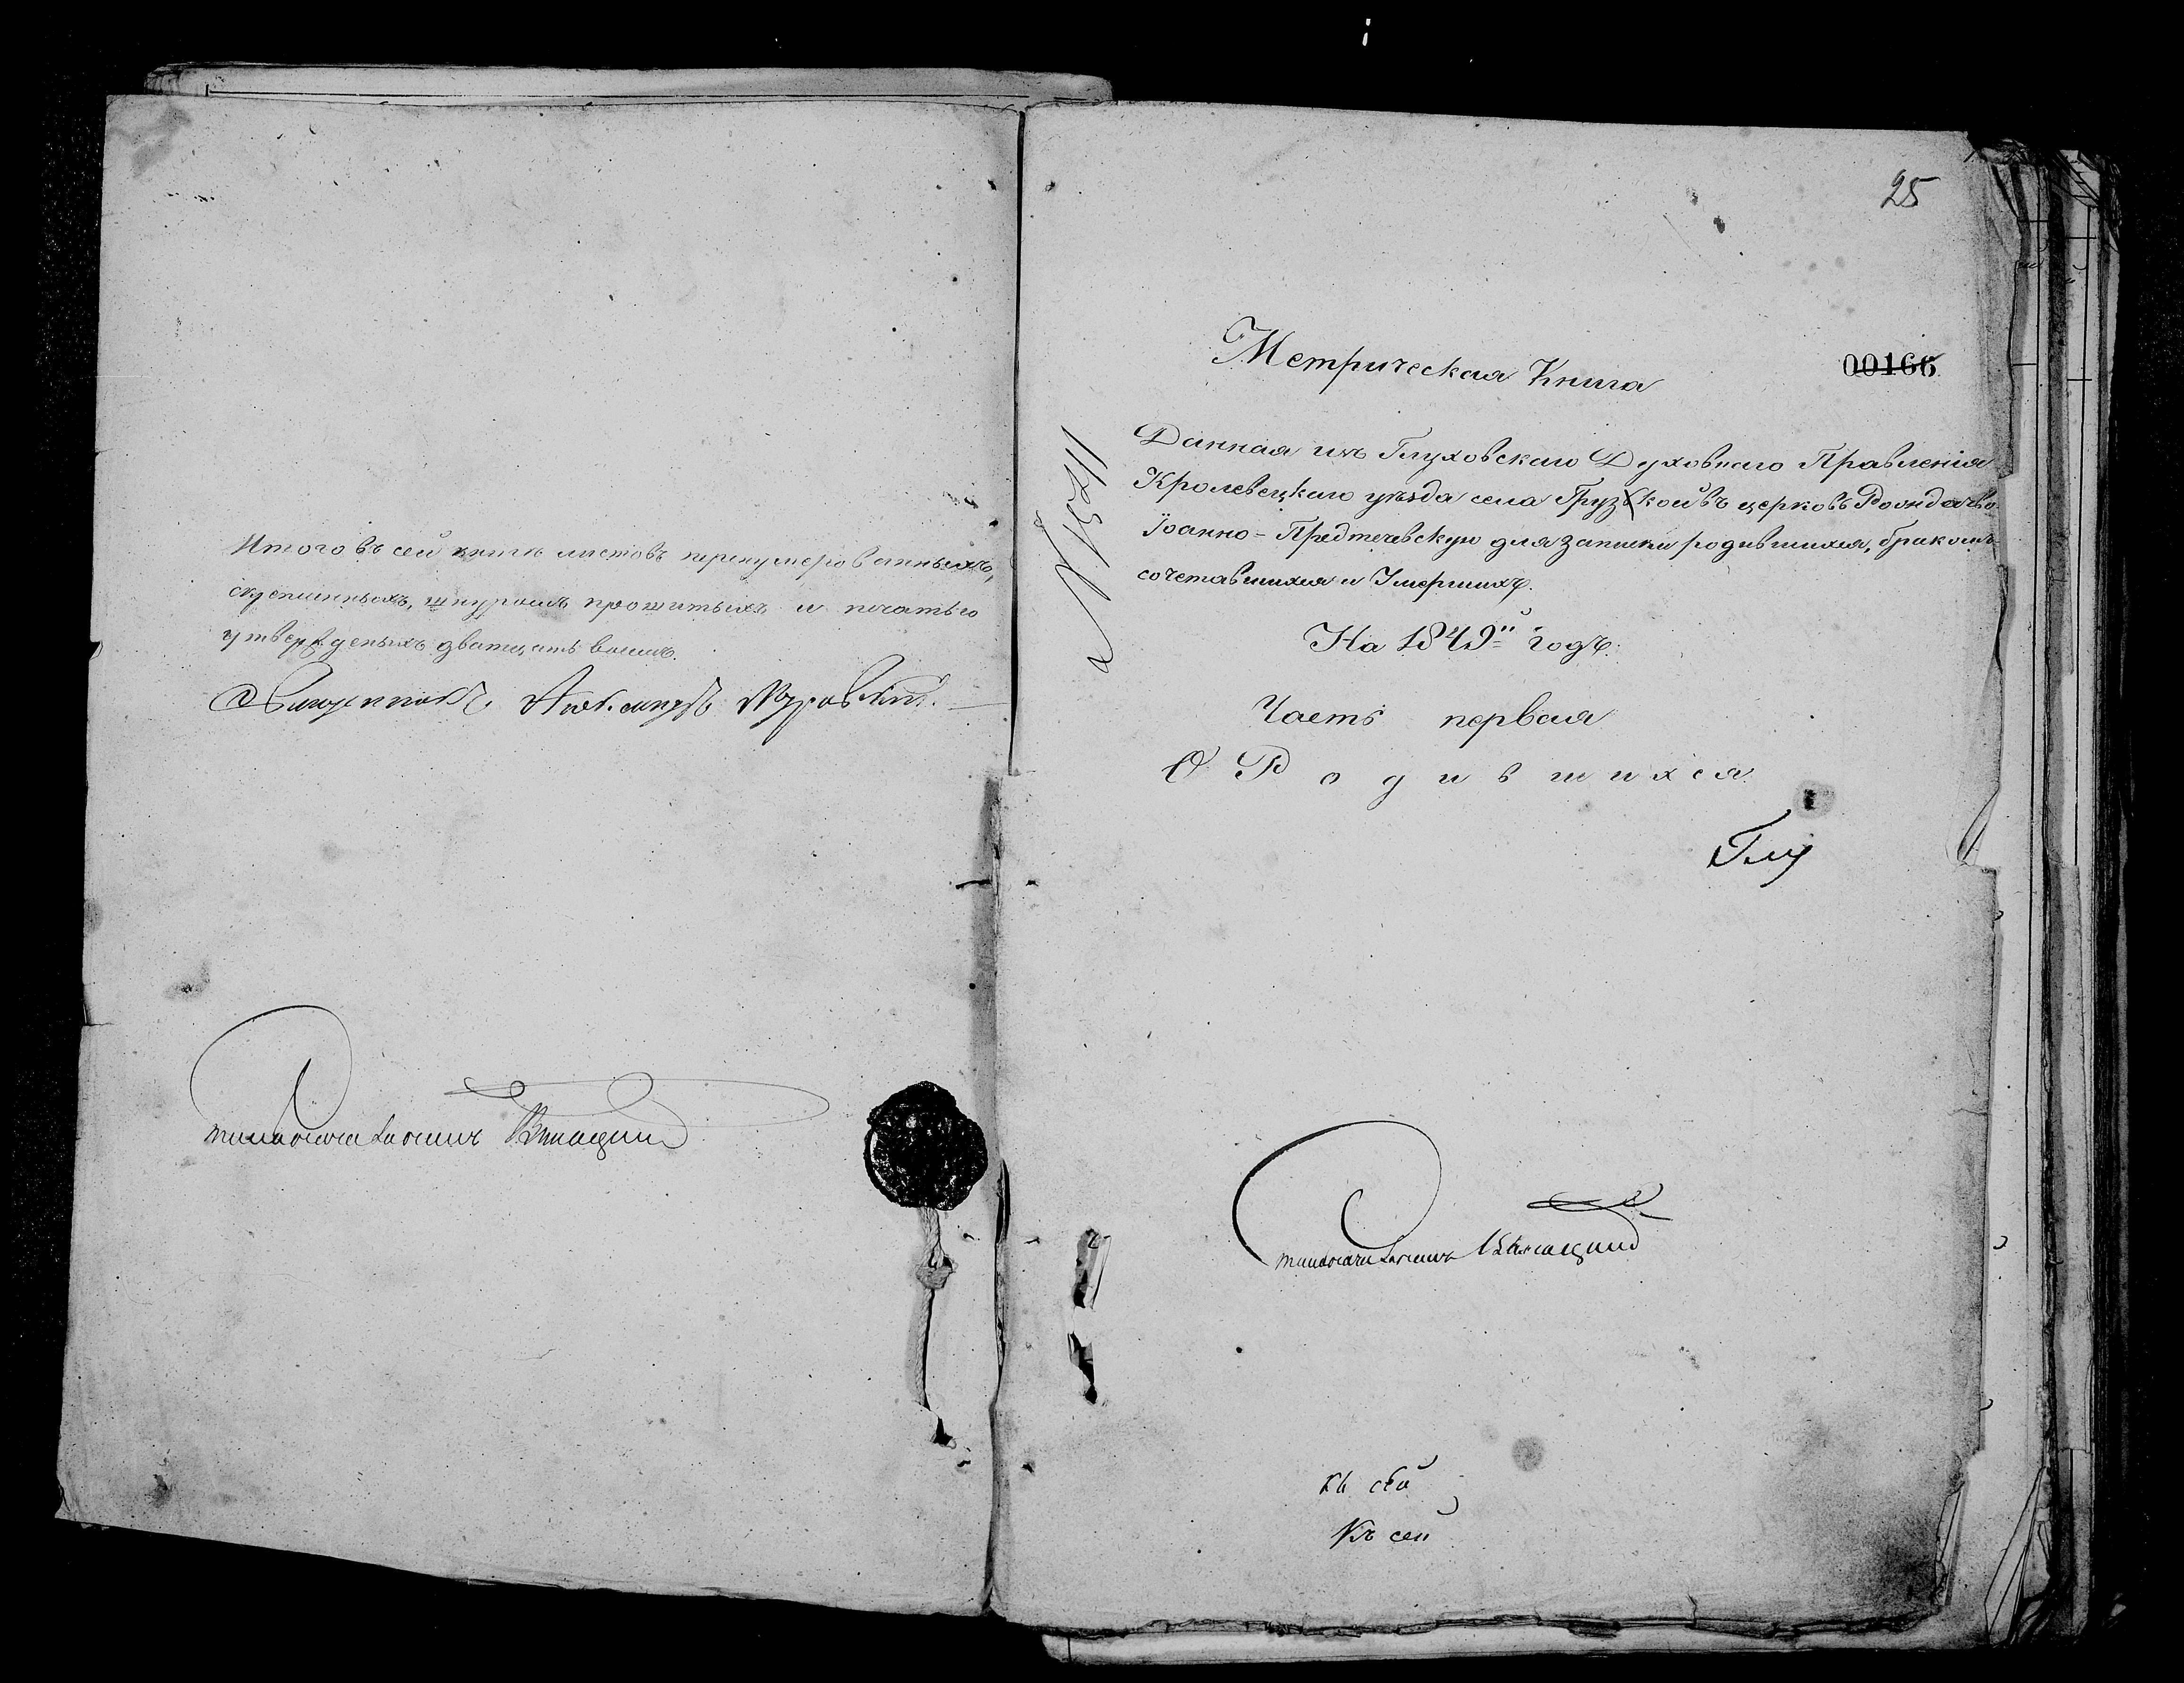 Итого въ сей книгѣ листовъ перенумерованныхъ,
скрепленныхъ, шнуромъ прошитыхъ и печатью
утвержденыхъ дватцать восемь.
Священникъ Александръ
25
Метрическая Книга
00166
Данная изъ Глуховскаго Духовнаго Правленія
Кролевецкаго уѣзда села Грузской въ церковь Рождество
Іоанно-Предтечевскую для записки родившихся, бракомъ
сочетавшихся и Умершихъ.
На 1849й годъ.
Часть первая
О Родившихся.
Глу
Къ сей
Къ сей